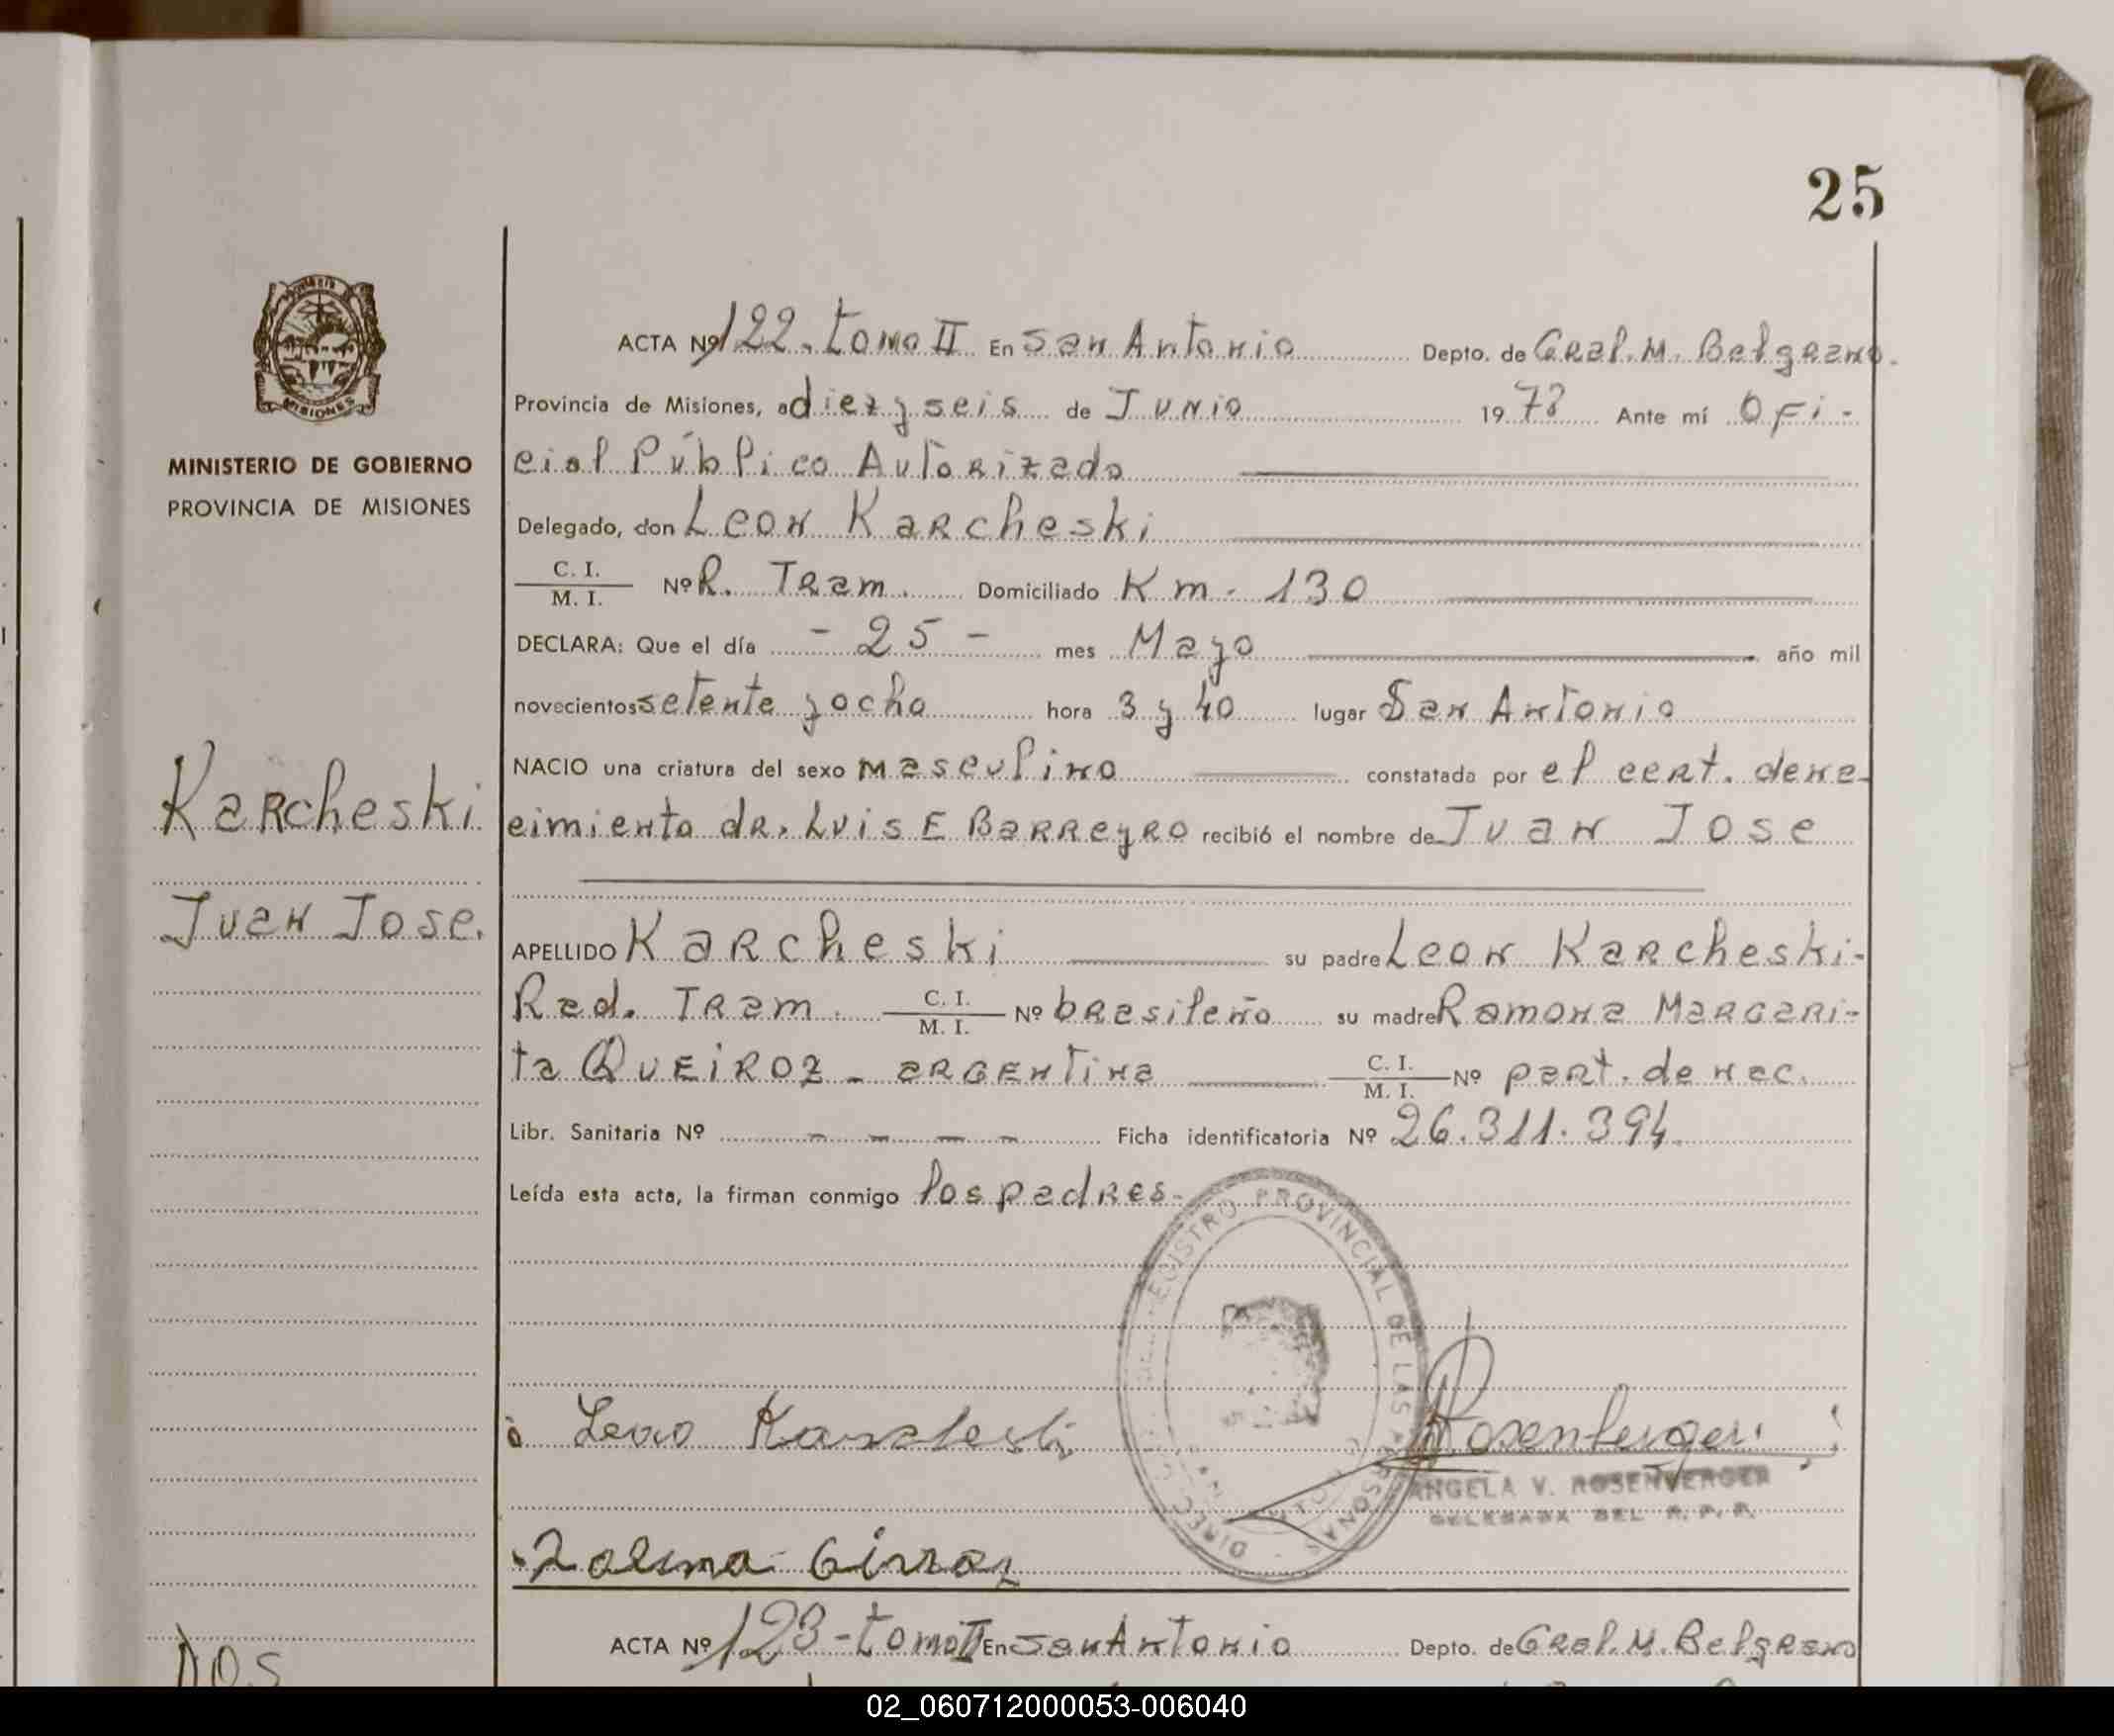 25
ACTA Nº 122. tomo II En San Antonio Depto. de Gral. M. Belgrano.
Provincia de Misiones, a diez y seis de Junio 1978 Ante mí Ofi-
MINISTERIO DE GOBIERNO
PROVINCIA DE MISIONES
cial Público Autorizado
Delegado, don Leon Karcheski
C. I. / M. I. Nº R. Tram. Domiciliado Km. 130
DECLARA: Que el día - 25 - mes Mayo año mil
novecientos setenta y ocho hora 3 y 40 lugar San Antonio
NACIO una criatura del sexo masculino constatada por el cert. de na-
Karcheski
cimiento dr. Luis E Barreyro recibió el nombre de Juan Jose
Juan Jose.
APELLIDO Karcheski su padre Leon Karcheski-
Rad. Tram. C. I. / M. I. Nº brasileño su madre Ramona Margari-
ta Queiroz - argentina C. I. / M. I. Nº part. de nac.
Libr. Sanitaria Nº - - - - Ficha identificatoria Nº 26.311.394.
Leída esta acta, la firman conmigo los padres.
REGISTRO PROVINCIAL DE LAS PERSONAS
Leao Karcheski
Rosenberger
ANGELA V. ROSENVERGER
DELEGADA DEL R. P. P.
ACTA Nº 123 - tomo II En San Antonio Depto. de Gral. M. Belgrano
DOS
02_060712000053-006040